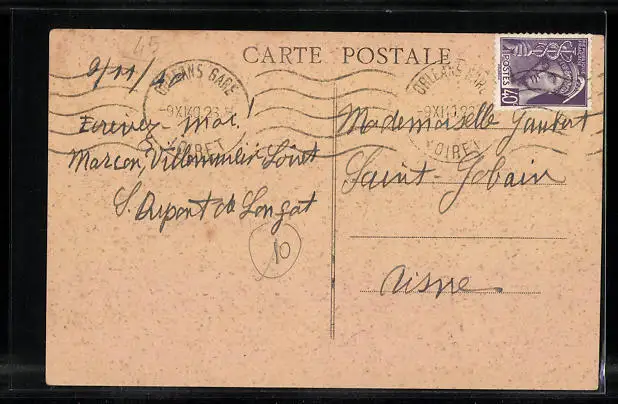 45
CARTE POSTALE
9/11/40
ORLEANS GARE
-9XI40 23
LOIRET
ORLEANS GARE
-9XI
LOIRET
POSTES 40
Ecrivez - moi!
Marcon, Villemurlin Loiret
S. Dupont de Longat
10
Mademoiselle Jaubert
Saint-Gobain
Aisne